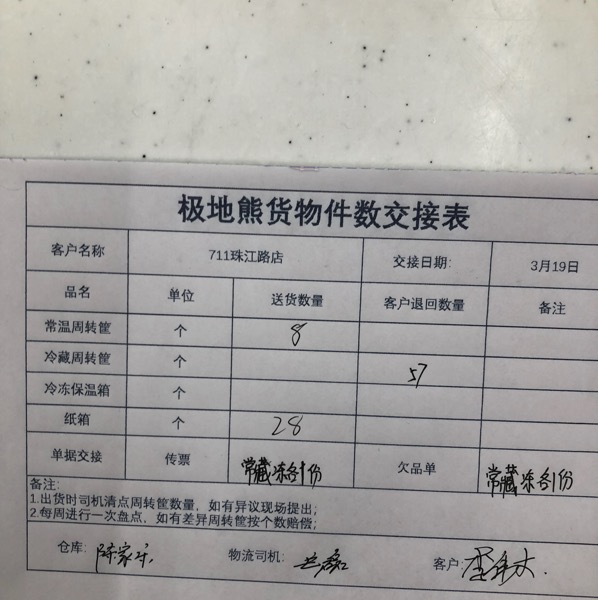 极地熊货物件数交接表
客户名称 711珠江路店 交接日期: 3月19日
品名 单位 送货数量 客户退回数量 备注
常温周转筐 个 8
冷藏周转筐 个 57
冷冻保温箱 个
纸箱 个 28
单据交接 传票 常藏冻各1份 欠品单 常藏冻各1份
备注:
1.出货时司机清点周转筐数量，如有异议现场提出;
2.每周进行一次盘点，如有差异周转筐按个数赔偿;
仓库: 陈家乐 物流司机: 客户: